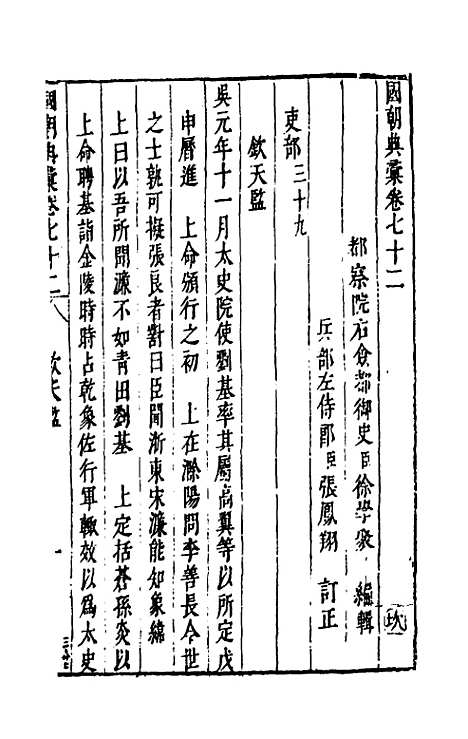 國朝典彙卷七十二
都察院右僉都御史臣徐學聚 編輯
兵部左侍郎臣張鳳翔 訂正
吏部三十九
欽天監
吳元年十一月太史院使劉基率其屬高翼等以所定戊
申曆進 上命頒行之初 上在滁陽問李善長今世
之士孰可擬張良者對曰臣聞浙東宋濂能知象緯
上曰以吾所聞濂不如青田劉基 上定括蒼孫炎以
上命聘基詣金陵時時占乾象佐行軍輒效以爲太史
國朝典彙卷七十二 欽天監 一